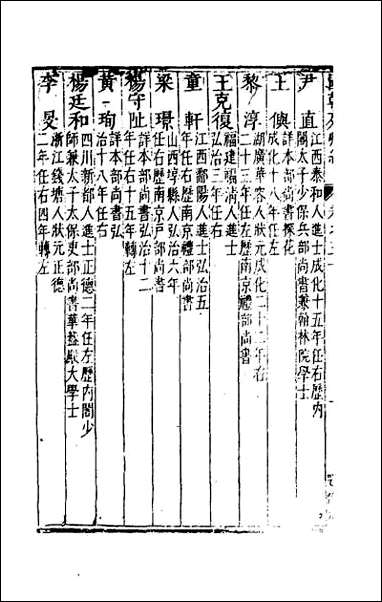 尹直
江西泰和人進士成化十五年任右歷內
閣太子少保兵部尚書兼翰林院學士
王㒜
詳本部尚書探花
成化十八年任左
黎淳
湖廣華容人狀元成化二十二年右
二十三年任左歷南京禮部尚書
王克復
福建福清人進士
弘治三年任右
童軒
江西鄱陽人進士弘治五
年任右歷南京禮部尚書
梁璟
山西埻縣人弘治六年
任右歷南京戶部尚書
楊守阯
詳本部尚書弘治十二
年任右十五年轉左
黃珣
詳本部尚書弘
治十八年任右
楊廷和
四川新都人進士正德二年任左歷內閣少
師兼太子太保吏部尚書華蓋殿大學士
李旻
浙江錢塘人狀元正德
二年任右四年轉左